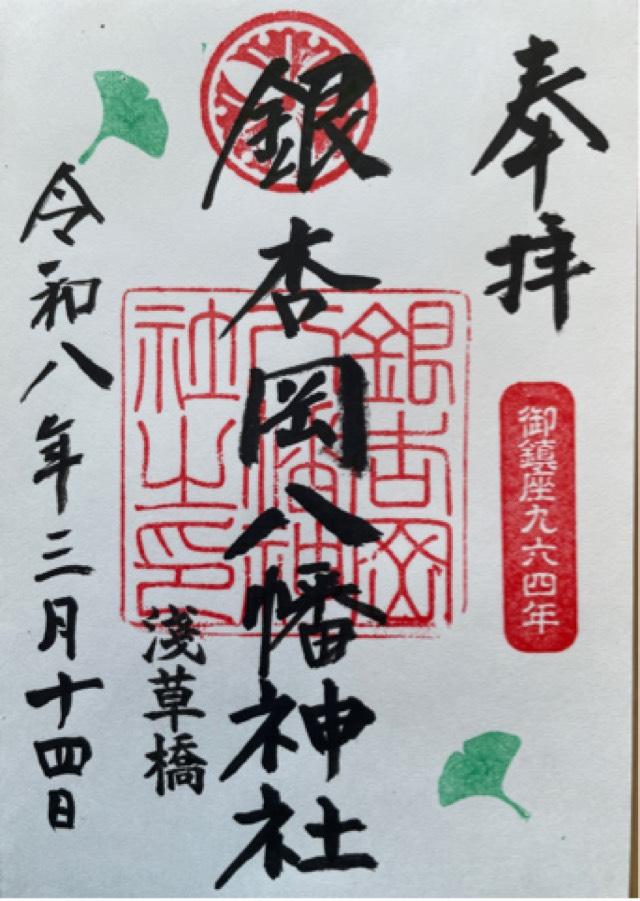 奉拝
御鎮座九六四年
銀杏岡八幡神社
銀杏岡
八幡神
社之印
淺草橋
令和八年三月十四日